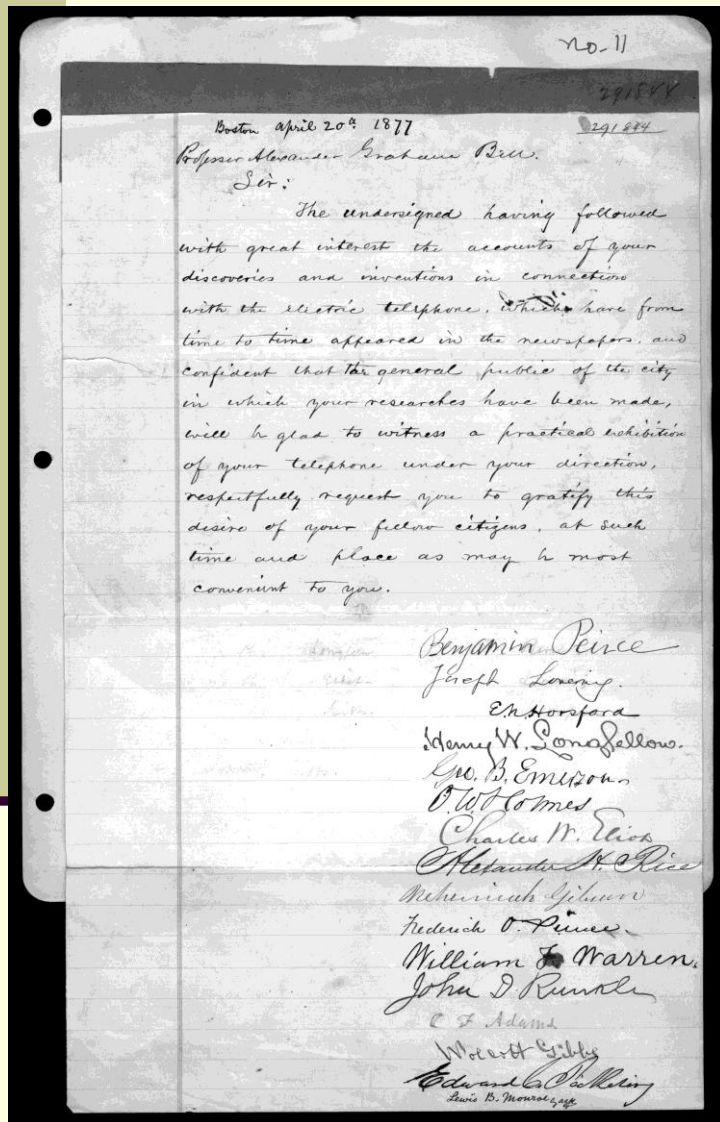 No. 11
291844
291844
Boston April 20th 1877
Professor Alexander Graham Bell.
Sir:
The undersigned having followed
with great interest the accounts of your
discoveries and inventions in connection
with the electric telephone, which have from
time to time appeared in the newspapers, and
confident that the general public of the city
in which your researches have been made,
will be glad to witness a practical exhibition
of your telephone under your direction,
respectfully request you to gratify this
desire of your fellow citizens, at such
time and place as may be most
convenient to you.
Benjamin Peirce
Joseph Lovering.
E.N. Horsford
Henry W. Longfellow.
Geo. B. Emerson
O. W. Holmes
Charles W. Eliot
Alexander H. Rice
Nehemiah Gibson
Frederick O. Prince.
William F. Warren.
John D Runkle
C F Adams
Wolcott Gibbs
Edward C. Pickering
Lewis B. Monroe